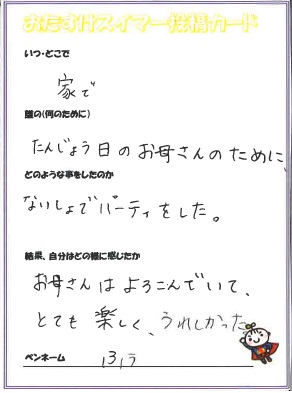 おたすけスイマー投稿カード
いつ・どこで
家で
誰の(何のために)
たんじょう日のお母さんのために、
どのような事をしたのか
ないしょでパーティをした。
結果、自分はどの様に感じたか
お母さんはよろこんでいて、
とても楽しく、うれしかった。
ペンネーム